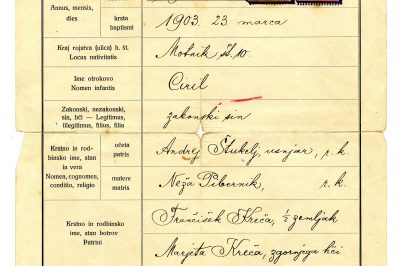 Annus, mensis,
dies
krsta
baptismi
1903. 23. marca
Kraj rojstva (ulica) h. št.
Locus nativitatis
Motnik št. 10.
Ime otrokovo
Nomen infantis
Ciril
Zakonski, nezakonski,
sin, hči — Legitimus,
illegitimus, filius, filia
zakonski sin
Krstno in rod-
binsko ime, stan
in vera
Nomen, cognomen,
conditio, religio
očeta
patris
Andrej Štukelj, usnjar, r. k.
matere
matris
Neža Pibernik, r. k.
Krstno in rodbinsko
ime, stan botrov
Patrini
Frančišek Kreča, ½ zemljak
Marjeta Kreča, zgornjega hči